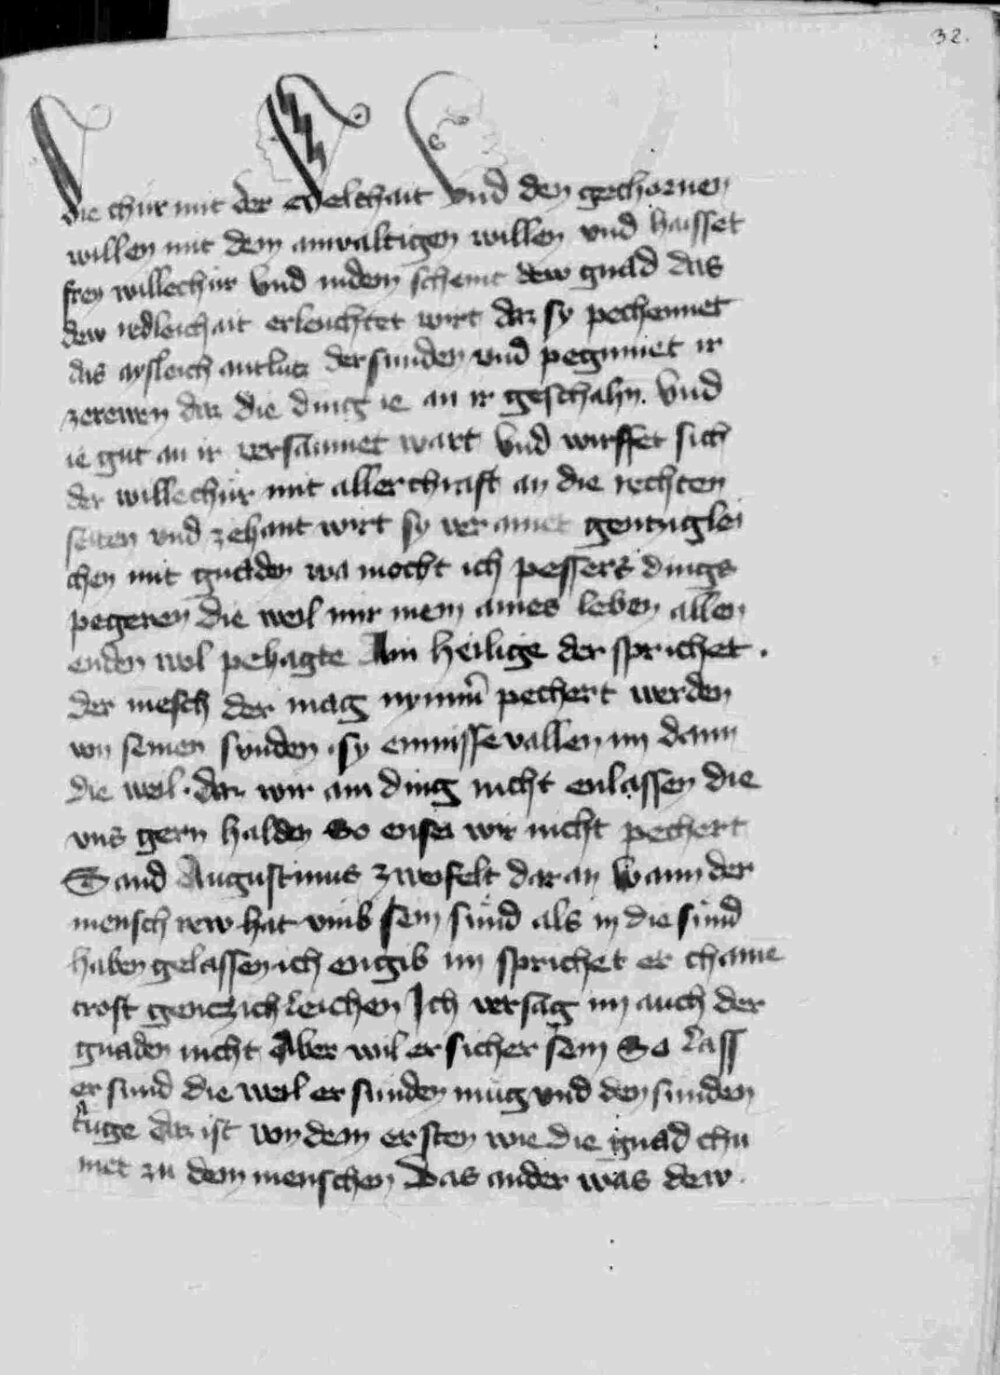 32.
die chur mit der Welchait Vnd den gechornen
willen mit dem anwaltigen willen vnd haisset
frey willechur Vnd indem scheint dew gnad das
dew redleichait erleuchtet wirt daz sy pechennet
das aysleich antlutz der sunden vnd pegynnet ir
zerewen daz die ding ie an ir geschahn. Vnd
ie gut an ir versaumet wart Vnd wirffet sich
der willechur mit aller chraft an die rechten
seiten vnd zehant wirt sy ver ainet gentzuglei
chen mit gnaden wa mocht ich pessers dings
pegeren die weil mir mein aines leben allen
enden wol pehagte Ain heilige der sprichet.
der mesch der mag nymm̄ pechert werden
von seinen synden. sy enmisse vallen im dann
die weil. daz wir ain ding nicht enlassen die
vns gern halden So ensei wir nicht pechert
Sand Augustinus zweifelt dar an Wann der
mensch rew hat vmb sein sund als in die sund
haben gelassen ich engib im sprichet er chaine
trost gentzichleichen Ich versag im auch der
gnaden nicht Aber wil er sicher sein So lass
er sund die weil er sunden mug vnd den sunden
tuge daz ist von dem ersten wie die gnad chu
met zu dem menschen Das ander was dew.